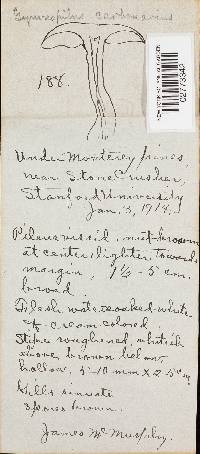 188.
02773342
Under Monterey pines,
near Stone Crusher,
Stanford University
Jan. 3, 1918.
Pileus viscid, most brown
at center, lighter toward
margin, 1½-5 cm.
broad.
Flesh water soaked white
cream colored.
Stipe roughened, whitish
above brown below,
hollow, 5-10 mm x 2-5 cm
Gills sinuate
spores brown.
James McMurphy